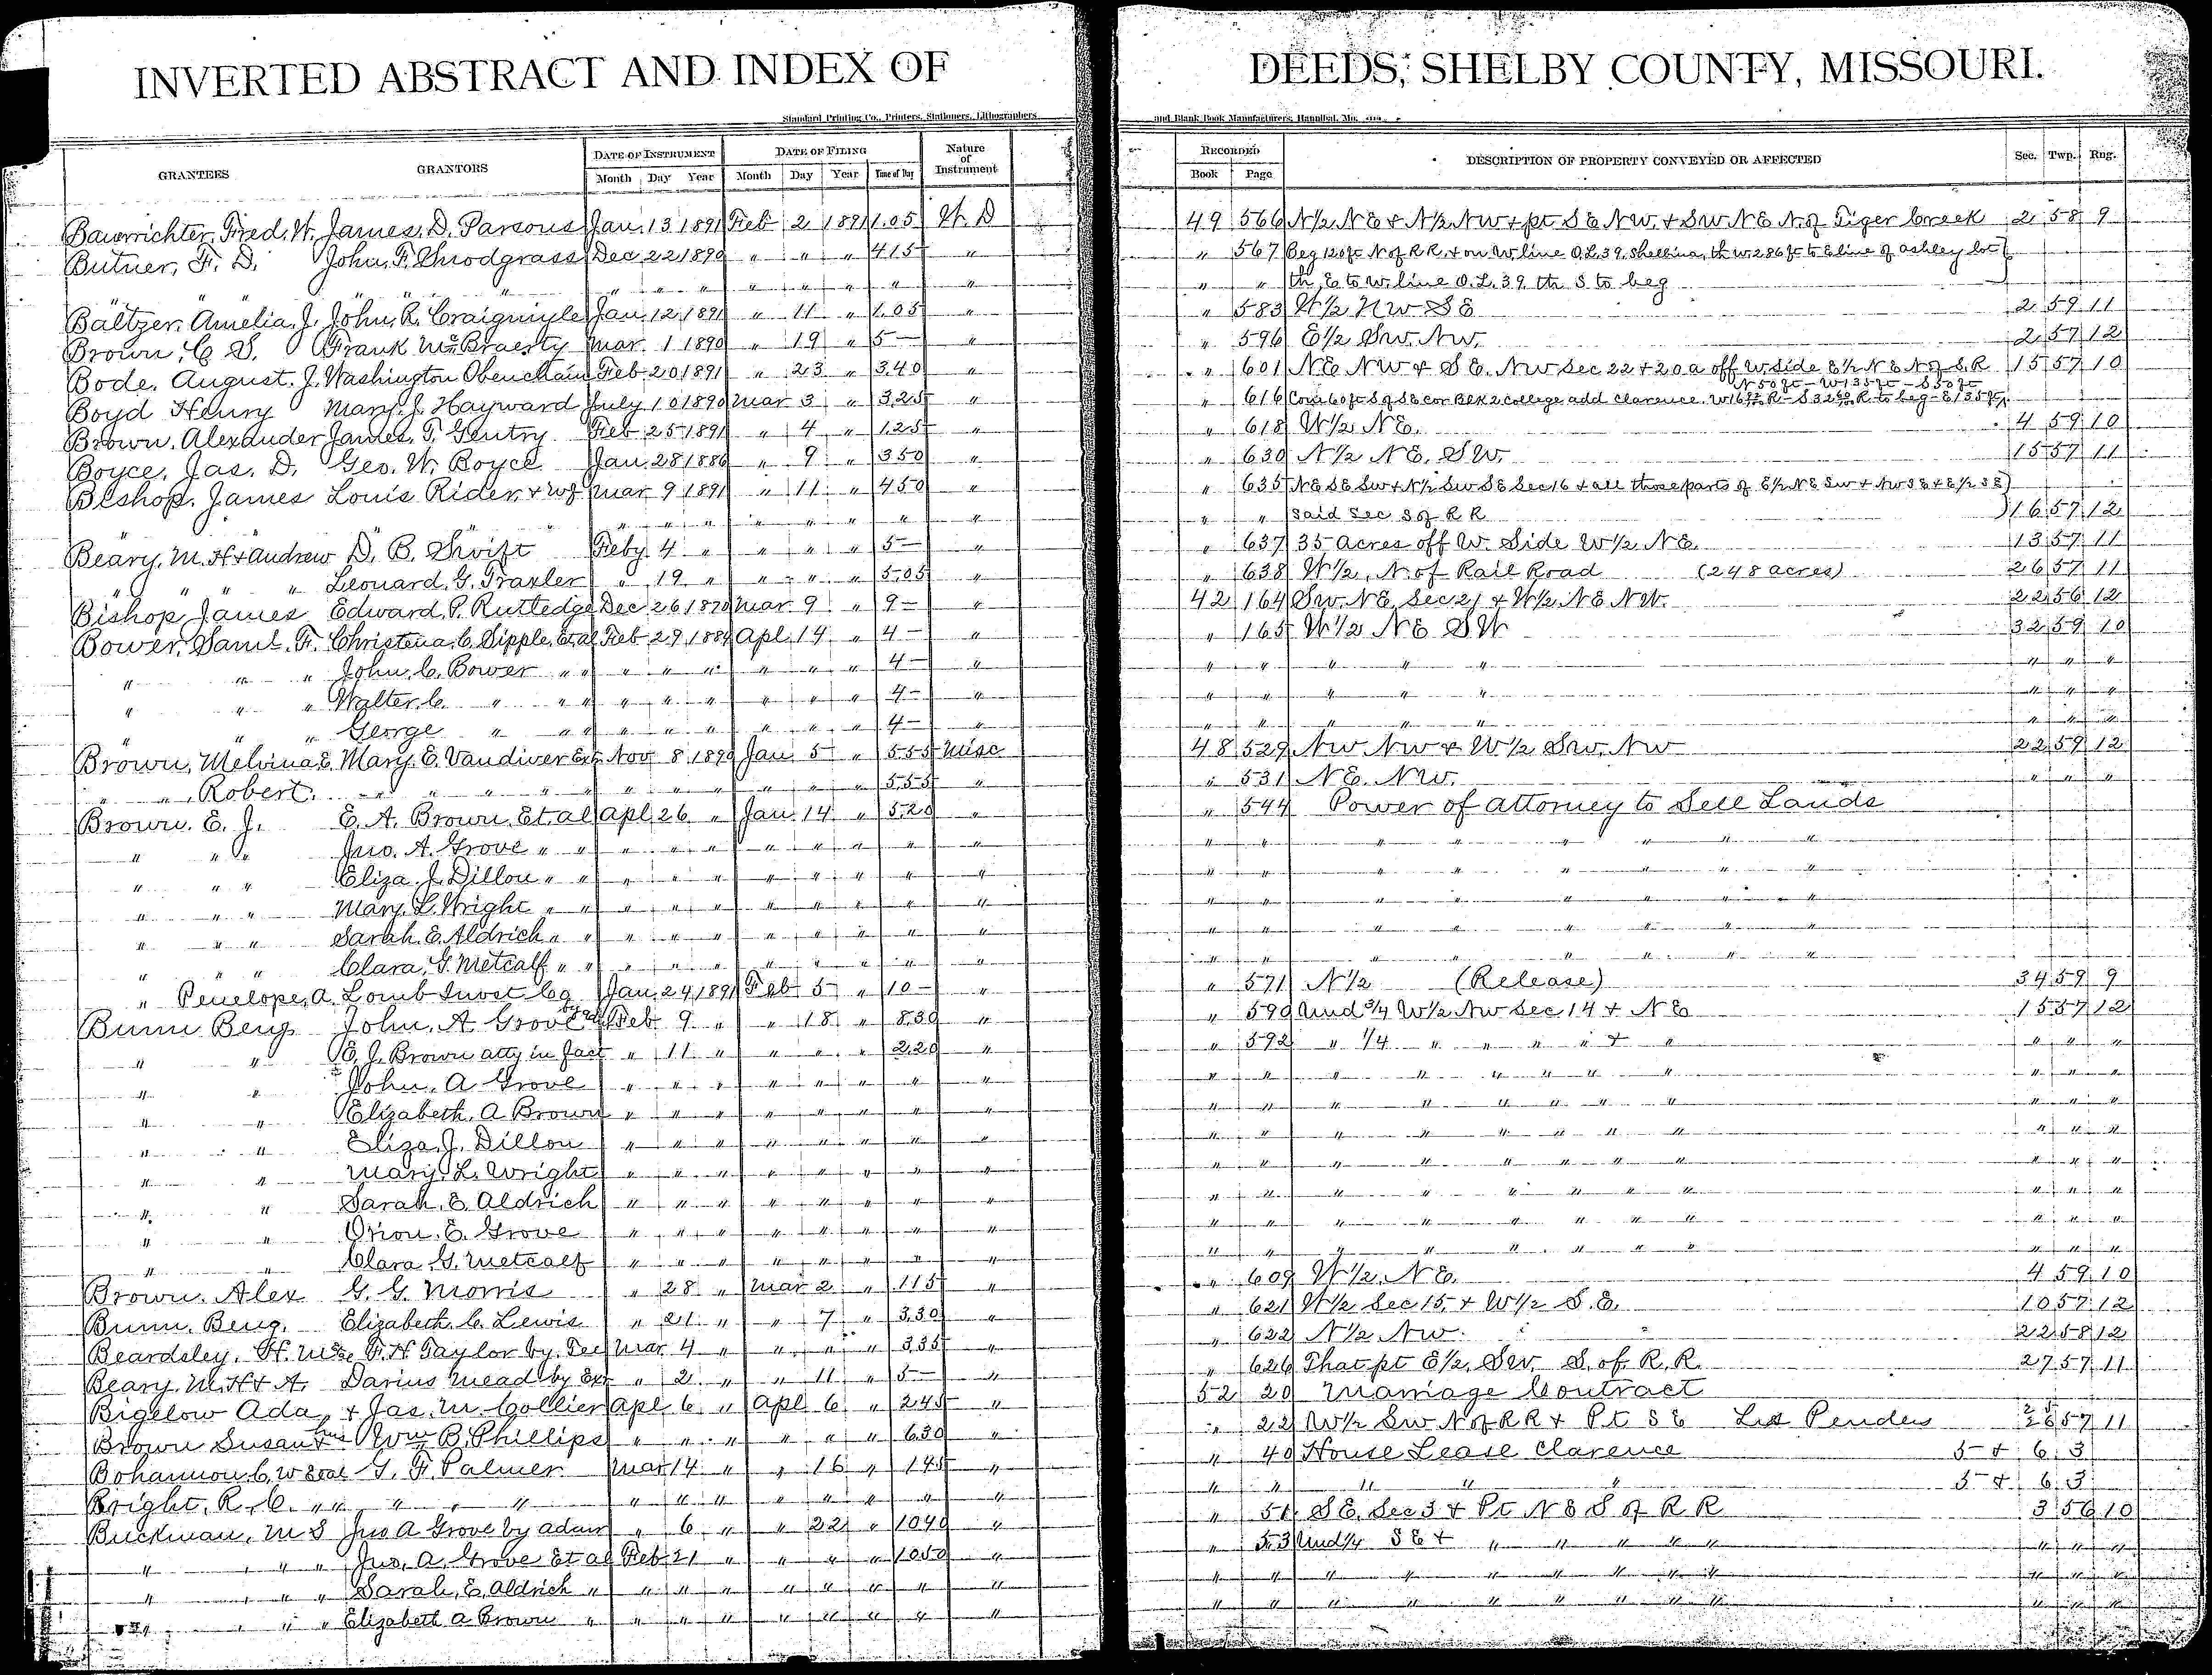 INVERTED ABSTRACT AND INDEX OF DEEDS, SHELBY COUNTY, MISSOURI.
Standard Printing Co., Printers, Stationers, Lithographers and Blank Book Manufacturers, Hannibal, Mo.
GRANTEES GRANTORS DATE OF INSTRUMENT Month Day Year DATE OF FILING Month Day Year Time of Day Nature of Instrument RECORDED Book Page DESCRIPTION OF PROPERTY CONVEYED OR AFFECTED Sec. Twp. Rng.
Bauerrichter, Fred. W. James. D. Parsons Jan. 13 1891 Feb 2 1891 1.05 W. D 49 566 N½ N E & N½ NW & pt S E NW. & SW N E N. of Tiger Creek 2 58 9
Butner, F. D. John. F. Snodgrass Dec 22 1890 " " " 415 " " 567 Beg 120 ft N of R R. & on W. line O. L. 39. Shelbina, th W. 286 ft to E line of Ashley lot
" " " " " " " " " " " " th, E to W. line O. L. 39 th S to beg
Baltzer, Amelia. J. John. R. Craigmyle Jan. 12 1891 " 11 " 1.05 " " 583 W½ NW SE 2 59 11
Brown, C. S. Frank McBraerty Mar. 1 1890 " 19 " 5— " " 596 E½ SW. NW. 2 57 12
Bode, August. J. Washington Obenchain Feb 20 1891 " 23 " 340 " " 601 NE NW & S E. NW Sec 22 & 20 a off W. side E½ N E N of S. R 15 57 10
N 50 ft - W 135 ft - S 50 ft
Boyd Henry Mary. J. Hayward July 10 1890 Mar 3 " 325 " " 616 Com 60 ft S of SE cor BLK 2 College add Clarence. R to beg - E 135 ft
Brown. Alexander James. T. Gentry Feb 25 1891 " 4 " 125 " " 618 W½ NE. 4 59 10
Boyce, Jas. D. Geo. W. Boyce Jan. 28 1886 " 9 " 350 " " 630 N½ NE. SW. 15 57 11
Bishop. James Louis Rider & Wf Mar 9 1891 " 11 " 450 " " 635 NE SE SW & N½ SW SE Sec 16 & all those parts of E½ NE SW & NW SE & E½ SE
" " " " " " " " " " said Sec S of R R 16 57 12
Beary. M. H & Andrew D. B. Swift Feby. 4 " " " " 5— " " 637 35 acres off W. Side W½ NE. 13 57 11
" " " Leonard. G. Traxler " 19 " " " " 5.05 " " 638 W½, N. of Rail Road (248 acres) 26 57 11
Bishop James Edward. P. Rutledge Dec 26 1870 Mar. 9 " 9— " 42 164 SW. NE. Sec 21 & W½ NE NW. 22 56 12
Bower, Saml. F. Christena. C. Sipple, Et al Feb 29 1884 Apl. 14 " 4— " " 165 W½ NE SW 32 59 10
" " " John. C. Bower " " " " " " " " 4— " " " " " " " "
" " " Walter. C. " " " " " " " " " 4— " " " " " " " "
" " " George " " " " " " " " " 4— " " " " " " " "
Brown, Melvina E. Mary. E. Vandiver Exr Nov 8 1890 Jan. 5 " 555 Misc 48 529 NW NW & W½ SW. NW 22 59 12
" " Robert. " " " " " " " " " " 555 " " 531 NE. NW. " " "
Brown. E. J. E. A. Brown. Et. al Apl. 26 " Jan. 14 " 520 " " 544 Power of attorney to Sell Lands
" " " Jno. A. Grove " " " " " " " " " " " " " " " "
" " " Eliza. J. Dillon " " " " " " " " " " " " " " " "
" " " Mary. L. Wright " " " " " " " " " " " " " " " "
" " " Sarah. E. Aldrich " " " " " " " " " " " " " " " "
" " " Clara. G. Metcalf " " " " " " " " " " " " " " " "
" Penelope. A. Lomb Invst Co Jan. 24 1891 Feb 5 " 10— " " 571 N½ (Release) 34 59 9
Bunn Benj. John. A Grove Feb 9 " " 18 " 830 " " 590 Und ¾ W½ NW Sec 14 & NE 15 57 12
" " E. J. Brown atty in fact " 11 " " " " 220 " " 592 " ¼ " " " " & " " " "
" " John. A Grove " " " " " " " " " " " " " " " " " "
" " Elizabeth. A Brown " " " " " " " " " " " " " " " " " "
" " Eliza. J. Dillon " " " " " " " " " " " " " " " " " "
" " Mary. L. Wright " " " " " " " " " " " " " " " " " "
" " Sarah. E. Aldrich " " " " " " " " " " " " " " " " " "
" " Orion. E. Grove " " " " " " " " " " " " " " " " " "
" " Clara G. Metcalf " " " " " " " " " " " " " " " " " "
Brown. Alex G. G. Morris " 28 " Mar 2 " 115 " " 609 W½. NE. 4 59 10
Bunn. Benj. Elizabeth. C. Lewis " 21 " " 7 " 330 " " 621 W½ Sec 15 & W½ S. E. 10 57 12
Beardsley. H. F. H Taylor by. Tee Mar 4 " " " " 335 " " 622 N½ NW. 22 58 12
Beary. M. H & A. Darius Mead by Exr " 2 " " 11 " 5— " " 626 That pt E½. SW. S. of R. R. 27 57 11
Bigelow Ada & Jas. M. Collier Apl 6 " Apl 6 " 245 " 52 20 Marriage Contract
Brown Susan & hus Wm B. Phillips " " " " " " 630 " " 22 W½ SW N of RR & Pt S E Lis Pendens 26 57 11
Bohannon C. W et al T. F. Palmer Mar 14 " " 16 " 145 " " 40 House Lease Clarence 5 & 6. 3
Bright. R. C. " " " " " " " " " " " " " " " " " " 5 & 6. 3
Buckman, M S Jno A Grove by admr " 6 " " 22 " 1040 " " 51 S E. Sec 3 & Pt N E S of R R 3 56 10
" " " Jno. A. Grove Et al Feb 21 " " " " 1050 " " 53 Und ¼ S E & " " " " " " " "
" " " Sarah. E. Aldrich " " " " " " " " " " " " " " " " " " "
" " " Elizabeth A Brown " " " " " " " " " " " " " " " " " " "